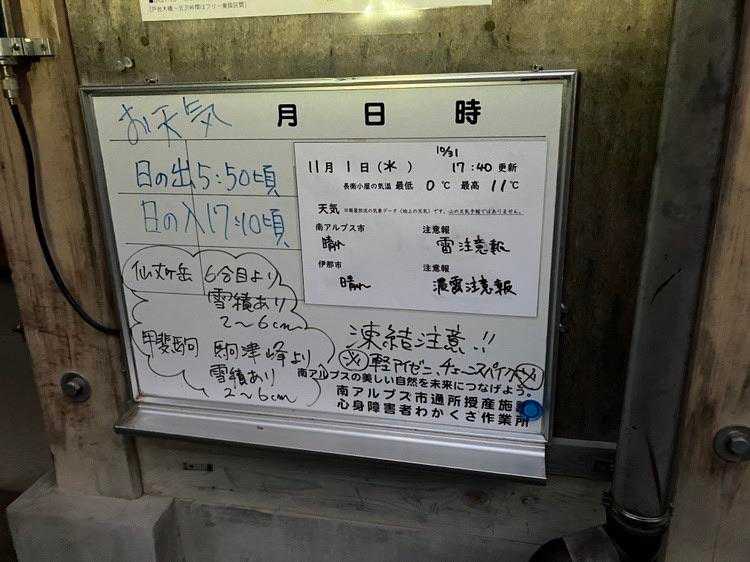 お天気 月 日 時
日の出5:50頃
日の入17:10頃
10/31
11月 1日(水) 17:40 更新
長衛小屋の気温 最低 0℃ 最高 11℃
天気 ※報道放送の気象データ(地上の天気)です。山の天気予報ではありません。
南アルプス市 注意報
晴れ 雷注意報
伊那市 注意報
晴れ 濃霧注意報
仙丈ヶ岳 6合目より
雪積あり
2〜6cm
甲斐駒 駒津峰より
雪積あり
2〜6cm
凍結注意!!
※軽アイゼン、チェーンスパイク※
南アルプスの美しい自然を未来につなげよう。
南アルプス市通所授産施設
心身障害者わかくさ作業所